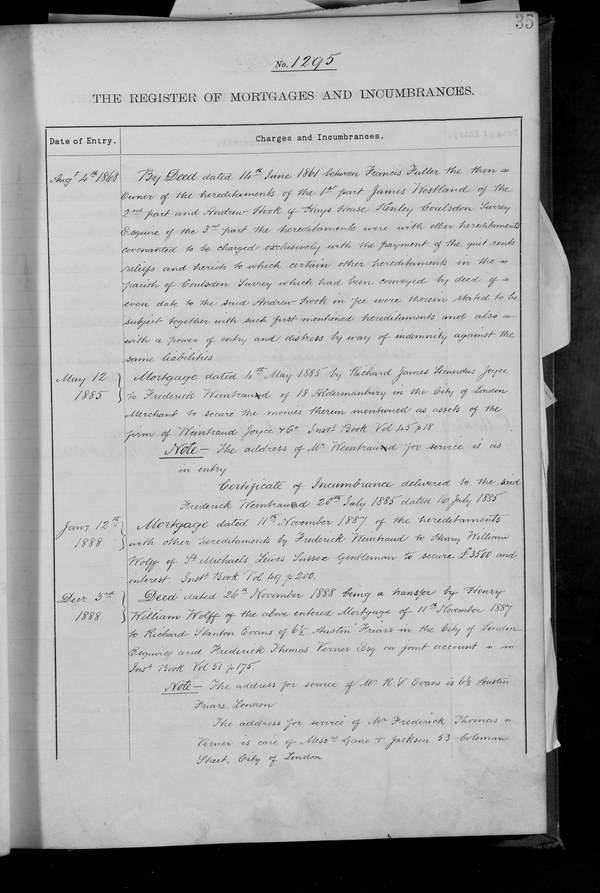 35
No. 1295
THE REGISTER OF MORTGAGES AND INCUMBRANCES.
Date of Entry.
Charges and Incumbrances.
Augt 4th 1868
By Deed dated 14th June 1861 between Francis Fuller the then
Owner of the hereditaments of the 1st part James Westland of the
2nd part and Andrew Hook of Hays House Kenley Coulsdon Surrey
Esquire of the 3rd part the hereditaments were with other hereditaments
covenanted to be charged exclusively with the payment of the quit rents
reliefs and heriots to which certain other hereditaments in the
parish of Coulsdon Surrey which had been conveyed by deed of
even date to the said Andrew Hook in fee were therein stated to be
subject together with such first mentioned hereditaments and also
with a power of entry and distress by way of indemnity against the
same liabilities
May 12
1885
Mortgage dated 4th May 1885 by Richard James Secundus Joyce
to Frederick Weintraud of 18 Aldermanbury in the City of London
Merchant to secure the monies therein mentioned as assets of the
firm of Weintraud Joyce & Co. Inst. Book Vol 45 p 18
Note – The address of Mr Weintraud for service is as
in entry
Certificate of Incumbrance delivered to the said
Frederick Weintraud 20th July 1885 dated 16 July 1885
Jany 12th
1888
Mortgage dated 11th November 1887 of the hereditaments
with other hereditaments by Frederick Weintraud to Henry William
Wolff of St Michaels Lewes Sussex Gentleman to secure £3500 and
interest Inst. Book Vol 49 p 200.
Decr 3rd
1888
Deed dated 26th November 1888 being a transfer by Henry
William Wolff of the above entered Mortgage of 11th November 1887
to Richard Stanton Evans of 6½ Austin Friars in the City of London
Esquire and Frederick Thomas Verner Esq on joint account
Inst Book Vol 51 p 175
Note – The address for service of Mr R. S. Evans is 6½ Austin
Friars London
The address for service of Mr Frederick Thomas
Verner is care of Messrs Gane & Jackson 53 Coleman
Street, City of London